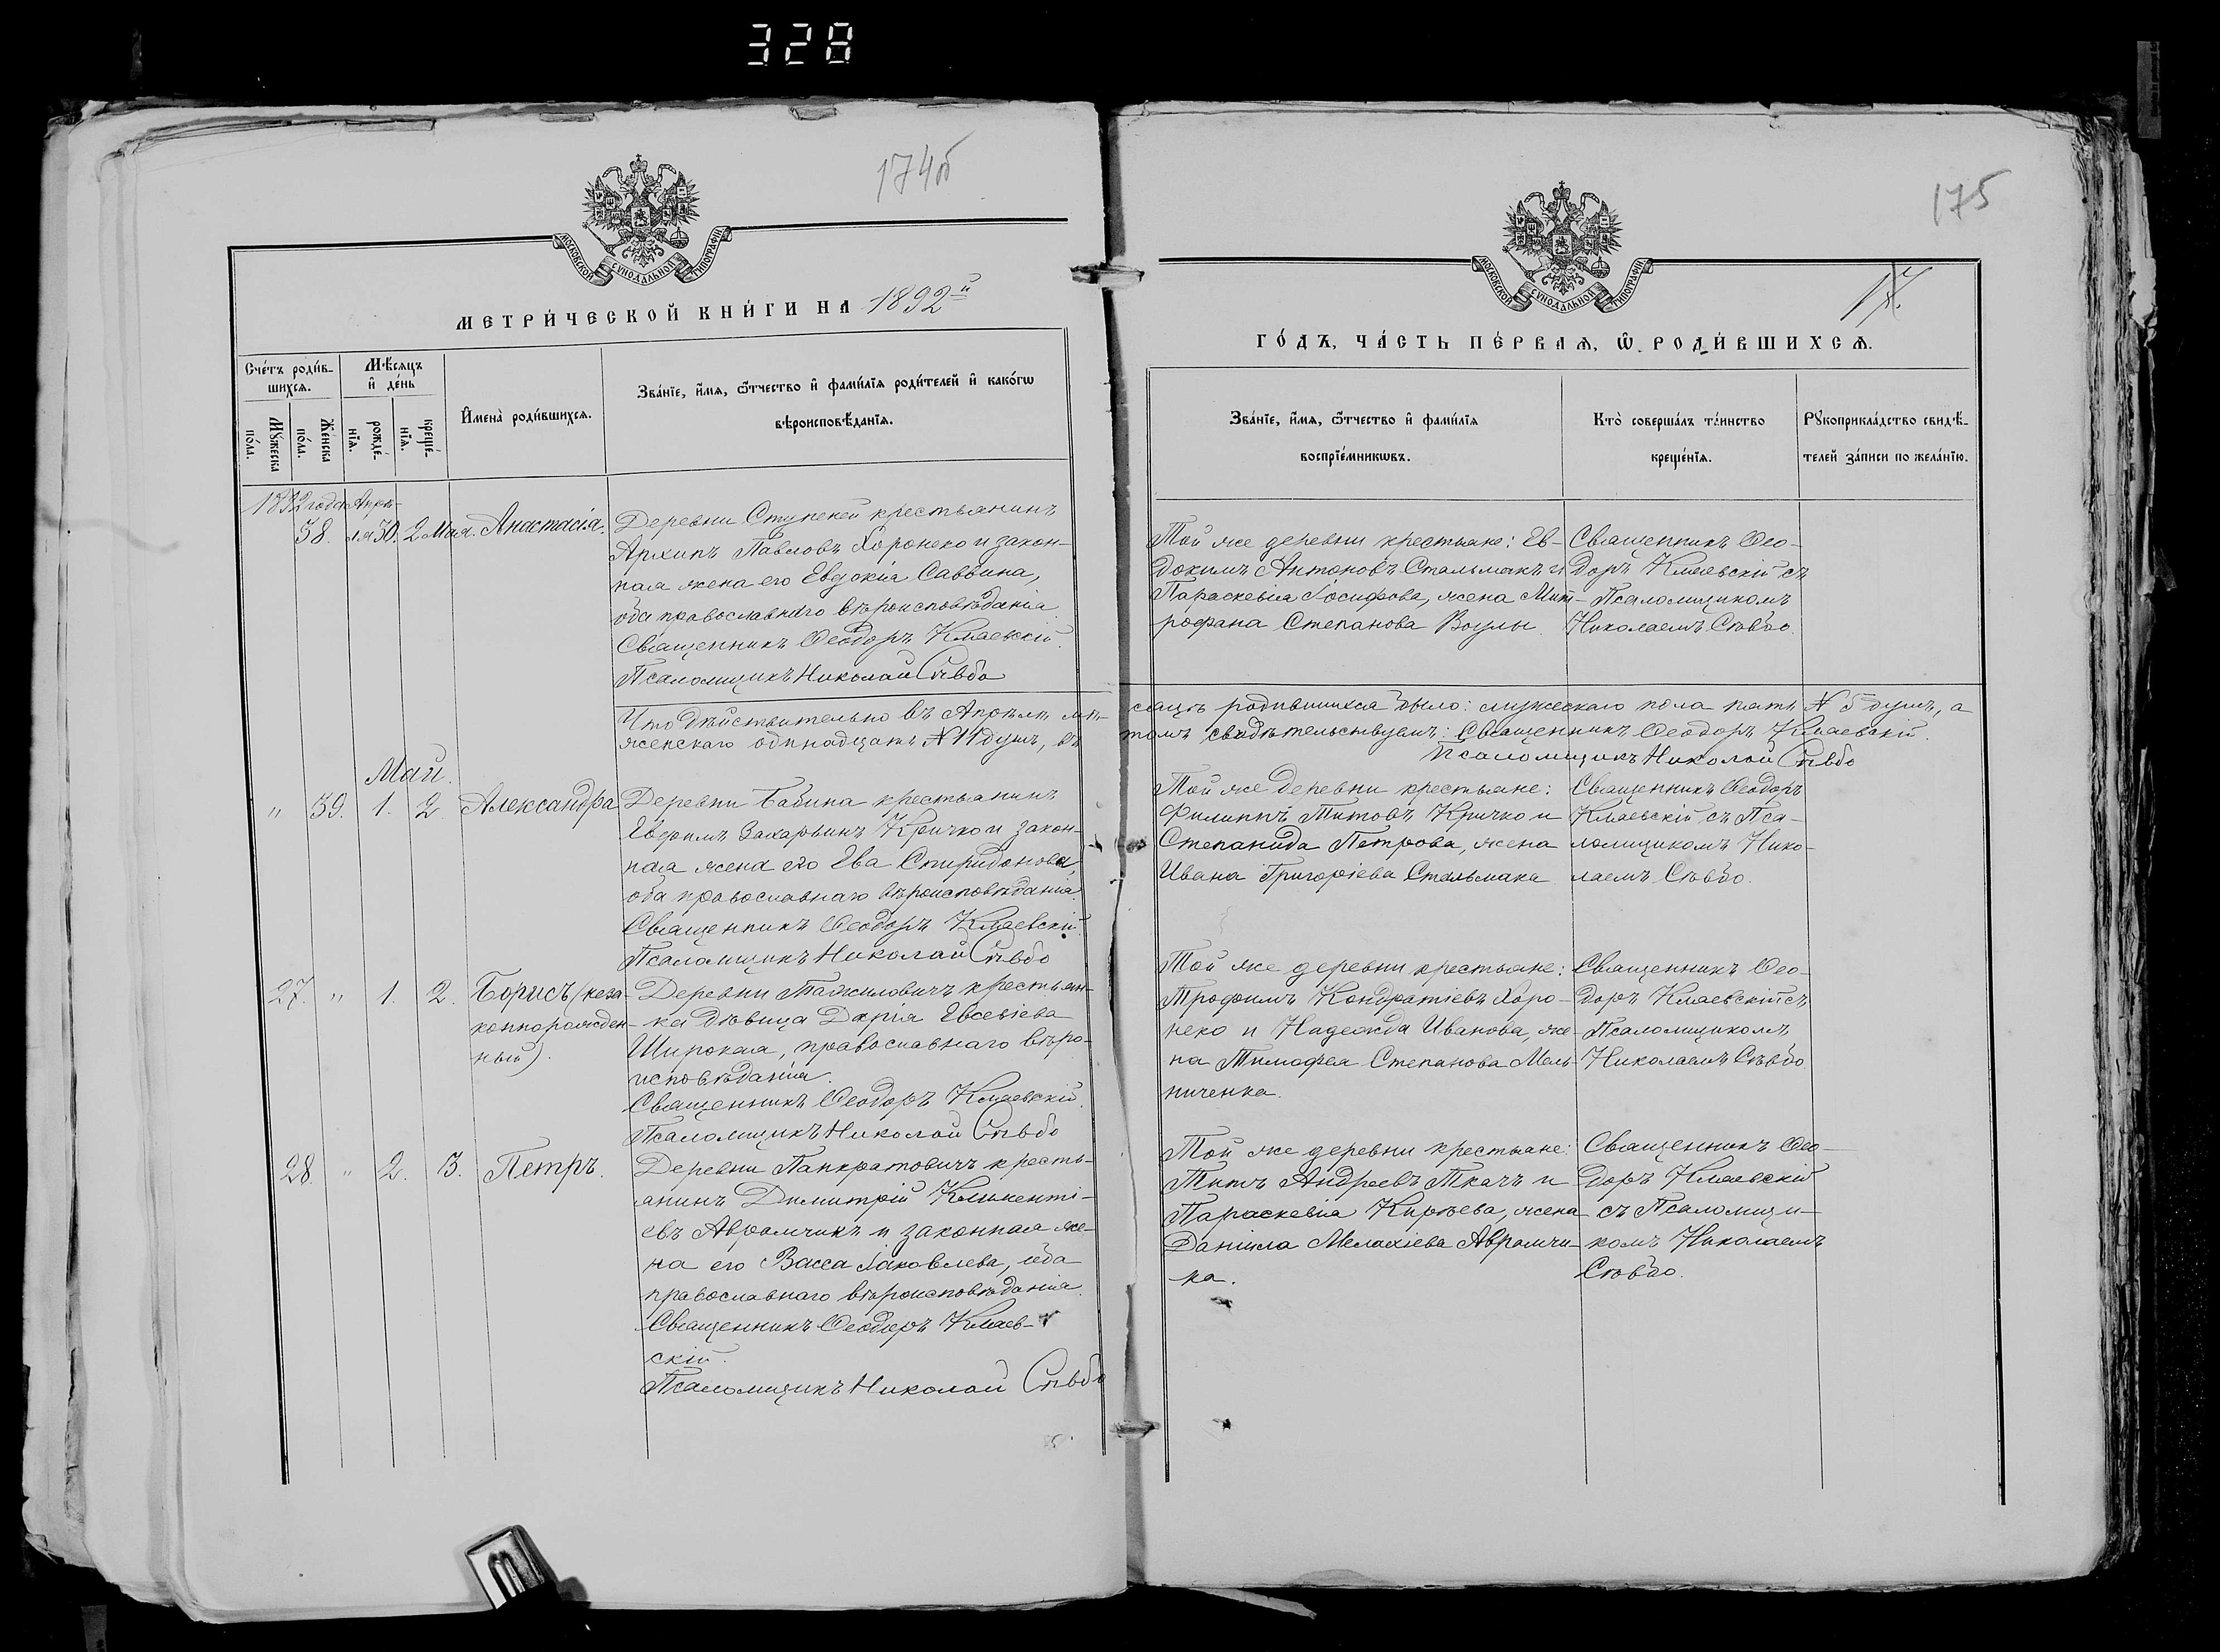 328
174об
МОСКОВСКОЙ СѴНОДАЛЬНОЙ ТИПОГРАФІИ
МЕТРИ́ЧЕСКОЙ КНИ́ГИ НА 1892й
Сче́тъ роди́в-
шихсѧ.
Мѣ́сѧцъ
и҆ де́нь
И҆мена̀ роди́вшихсѧ.
Зва́нїе, и҆́мѧ, ѻ҆́тчество и҆ фами́лїѧ роди́телей и҆ како́гѡ
вѣроисповѣ́данїѧ.
Мꙋ́жеска
по́ла.
Же́нска
по́ла.
рожде́-
нїѧ.
креще́-
нїѧ.
1892 года Апрѣ-
38. ля 30. 2 Мая. Анастасія.
Деревни Ступеней крестьянинъ
Архипъ Павловъ Хоронеко и закон-
ная жена его Евдокія Саввина,
оба православнаго вѣроисповѣданія
Священникъ Ѳеодоръ Кмаевскій.
Псаломщикъ Николай Сѣвбо
Что дѣйствительно въ Апрѣлѣ мѣ-
женскаго одинадцать № 11 душъ, въ
Май.
" 39. 1. 2. Александра
Деревни Бабина крестьянинъ
Евфимъ Захарьинъ Кричко и закон-
ная жена его Ева Спиридонова,
оба православнаго вѣроисповѣданія.
Священникъ Ѳеодоръ Кмаевскій.
Псаломщикъ Николай Сѣвбо
27. " 1. 2. Борисъ (неза-
коннорожден-
ный).
Деревни Тажиловичъ крестьян-
ка дѣвица Дарія Евсевіева
Широкая, православнаго вѣро-
исповѣданія.
Священникъ Ѳеодоръ Кмаевскій.
Псаломщикъ Николай Сѣвбо
28. " 2. 3. Петръ.
Деревни Панкратовичъ кресть-
янинъ Димитрій Климентi-
евъ Аврамчикъ и законная же-
на его Васса Іаковлева, оба
православнаго вѣроисповѣданія.
Священникъ Ѳеодоръ Кмаев-
скій.
Псаломщикъ Николай Сѣвбо
175
МОСКОВСКОЙ СѴНОДАЛЬНОЙ ТИПОГРАФІИ
ГО́ДЪ, ЧА́СТЬ ПЕ́РВАѦ, Ѡ҆ РОДИ́ВШИХСѦ.
Зва́нїе, и҆́мѧ, ѻ҆́тчество и҆ фами́лїѧ
воспрїе́мникѡвъ.
Кто̀ соверша́лъ та́инство
креще́нїѧ.
Рꙋкоприкла́дство свидѣ́-
телей за́писи по жела́нїю.
Той же деревни крестьяне: Ев-
докимъ Антоновъ Стальмакъ и
Параскевія Іосифова, жена Мит-
рофана Степанова Воулы.
Священникъ Ѳео-
доръ Кмаевскій съ
Псаломщикомъ
Николаемъ Сѣвбо.
сяцѣ родившихся было: мужескаго пола пять № 5 душъ, а
томъ свидѣтельствуемъ: Священникъ Ѳеодоръ Кмаевскій.
Псаломщикъ Николай Сѣвбо
Той же деревни крестьяне:
Филиппъ Титовъ Кричко и
Степанида Петрова, жена
Ивана Григоріева Стальмака
Священникъ Ѳеодоръ
Кмаевскій съ Пса-
ломщикомъ Нико-
лаемъ Сѣвбо.
Той же деревни крестьяне:
Трофимъ Кондратіевъ Хоро-
неко и Надежда Иванова, же-
на Тимофея Степанова Мель-
ниченка.
Священникъ Ѳео-
доръ Кмаевскій съ
Псаломщикомъ
Николаемъ Сѣвбо.
Той же деревни крестьяне:
Титъ Андреевъ Ткачъ и
Параскевія Кирѣева, жена
Даніила Мелахіева Аврамчи-
ка.
Священникъ Ѳео-
доръ Кмаевскій
съ Псаломщи-
комъ Николаемъ
Сѣвбо.